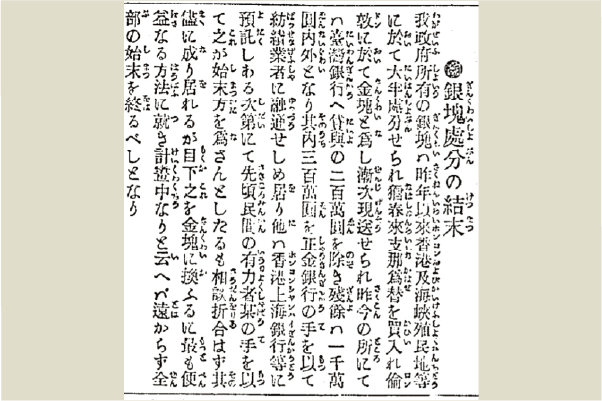 銀塊處分の結末
我政府所有の銀塊ハ昨年以來香港及海峽殖民地等
に於て大半處分せられ猶春來支那爲替を買入れ倫
敦に於て金塊と爲し漸次現送せられ昨今の所にて
ハ臺灣銀行へ貸與の二百萬圓を除き殘餘ハ一千萬
圓内外となり其内三百萬圓を正金銀行の手を以て
紡績業者に融通せしめ居り他ハ香港上海銀行等に
預託しある次第にて先頃民間の有力者某の手を以
て之が始末方を爲さんとしたるも相談折合はず其
儘に成り居れるが目下之を金塊に換ふるに最も便
益なる方法に就き計畫中なりと云へバ遠からず全
部の始末を終るべしとなり